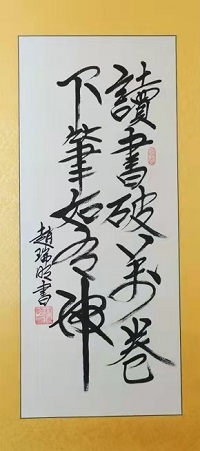 讀書破万卷
下筆如有神
趙瑞昭書